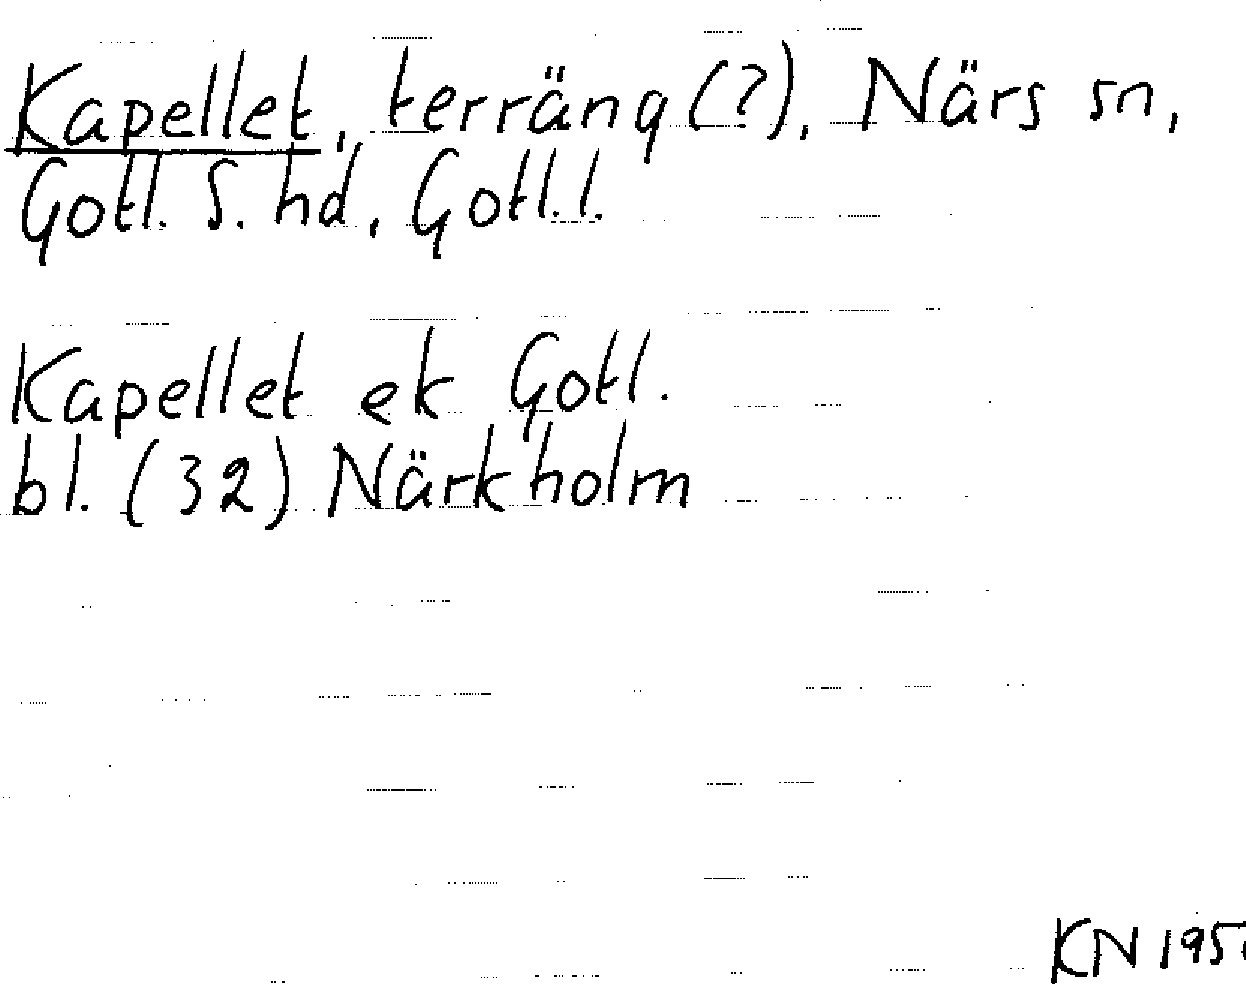 Kapellet, terräng (?), Närs sn,
Gotl. S. hd, Gotl. l.
Kapellet ek Gotl.
bl. (32) Närkholm
KN